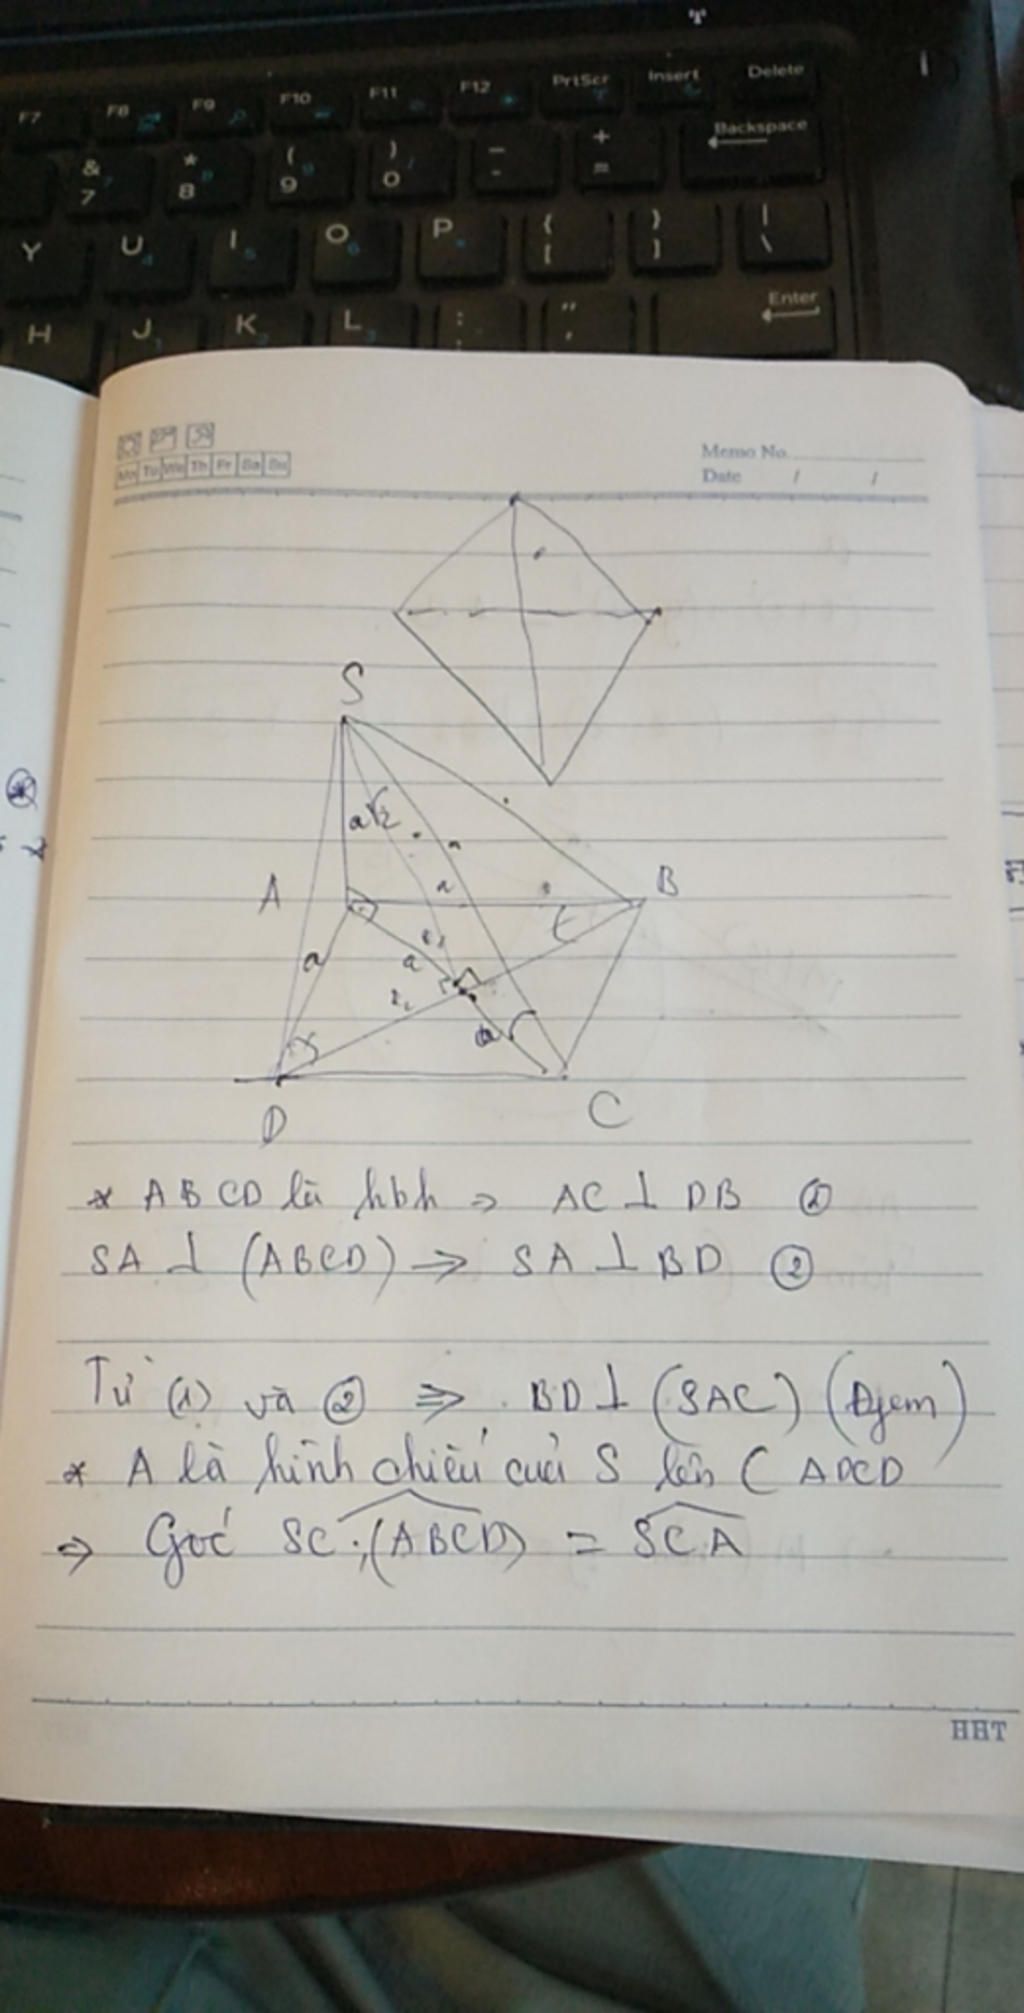 F7 F8 F9 F10 F11 F12 PrtScr Insert Delete
& 7 * 8 ( 9 ) 0 _ - + = Backspace
Y U I O P { [ } ] | \
H J K L : ; " ' Enter
Mo Tu We Th Fr Sa Su
Memo No.
Date / /
S
a√2
a
A
a
B
a
a
a
D
C
* ABCD là hbh ⇒ AC ⊥ DB ①
SA ⊥ (ABCD) ⇒ SA ⊥ BD ②
Từ (1) và ② ⇒ BD ⊥ (SAC) (Đpcm)
* A là hình chiếu của S lên (ABCD
⇒ Góc SC;(ABCD) = SCA
HHT